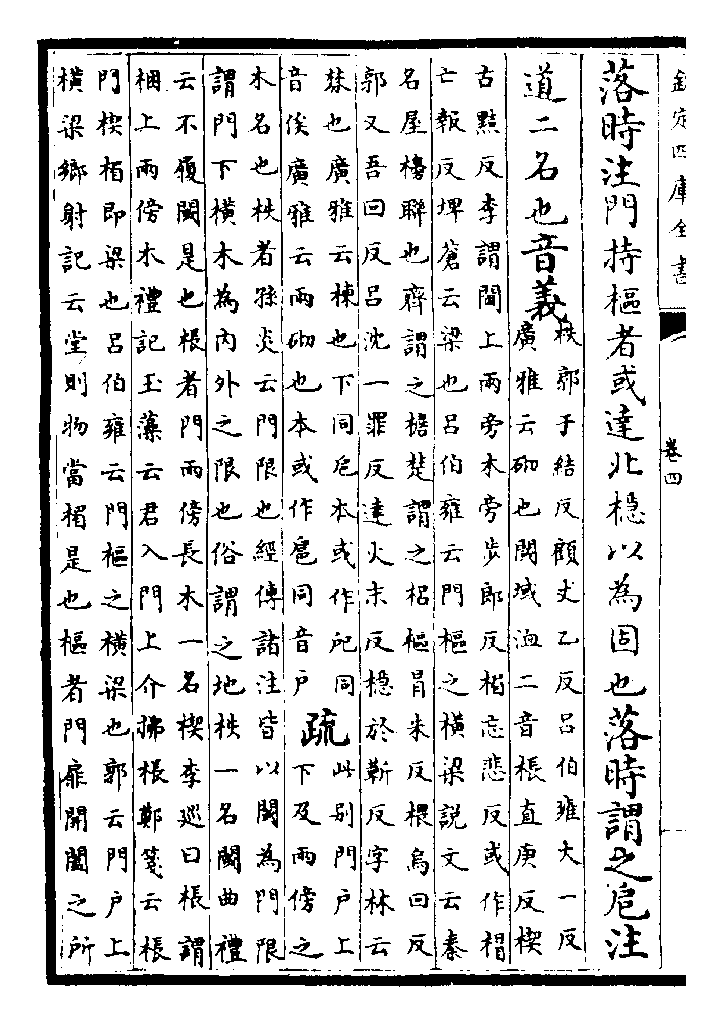 欽定四庫全書
卷四
落時注門持樞者或達北檼以為固也落時謂之戹注
道二名也音義
秩郭千結反顧丈乙反呂伯雍大一反
廣雅云砌也閾域洫二音棖直庚反楔
古黠反李謂閫上兩旁木旁步郎反楣忘悲反或作楣
亡報反埤蒼云梁也呂伯雍云門樞之橫梁說文云秦
名屋櫋聯也齊謂之檐楚謂之梠樞昌朱反椳烏回反
郭又吾回反呂沈一罪反達火末反檼於靳反字林云
棼也廣雅云棟也下同戹本或作㞒同
音俟廣雅云雨砌也本或作扈同音户
疏
此别門户上
下及兩傍之
木名也柣者孫炎云門限也經傳諸注皆以閾為門限
謂門下橫木為内外之限也俗謂之地柣一名閾曲禮
云不履閾是也棖者門兩傍長木一名楔李巡曰棖謂
梱上兩傍木禮記玉藻云君入門上介拂棖鄭箋云棖
門楔楣即梁也呂伯雍云門樞之橫梁也郭云門户上
橫梁鄉射記云堂則物當楣是也樞者門扉開闔之所